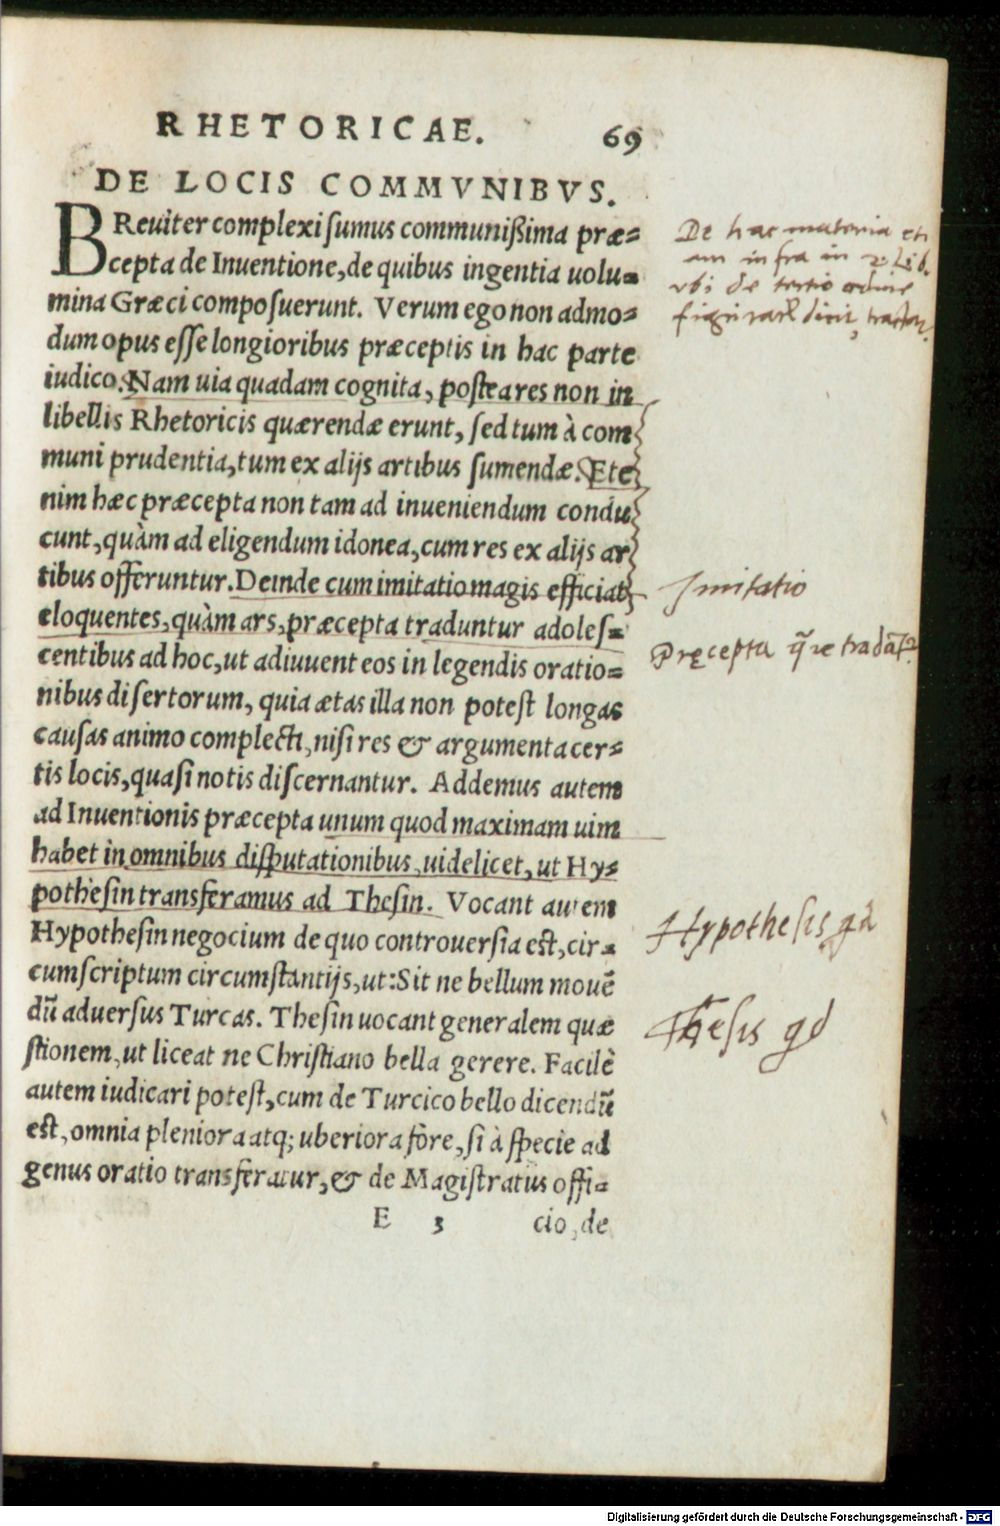 RHETORICAE. 69
DE LOCIS COMMVNIBVS.
BReuiter complexi sumus communißima præ=
cepta de Inuentione, de quibus ingentia uolu=
mina Græci composuerunt. Verum ego non admo=
dum opus esse longioribus præceptis in hac parte
iudico. Nam uia quadam cognita, postea res non in
libellis Rhetoricis quærendæ erunt, sed tum à com
muni prudentia, tum ex alijs artibus sumendæ. Ete
nim hæc præcepta non tam ad inueniendum condu
cunt, quàm ad eligendum idonea, cum res ex alijs ar
tibus offeruntur. Deinde cum imitatio magis efficiat
eloquentes, quàm ars, præcepta traduntur adoles=
centibus ad hoc, ut adiuuent eos in legendis oratio=
nibus disertorum, quia ætas illa non potest longas
causas animo complecti, nisi res & argumenta cer=
tis locis, quasi notis discernantur. Addemus autem
ad Inuentionis præcepta unum quod maximam uim
habet in omnibus disputationibus, uidelicet, ut Hy=
pothesin transferamus ad Thesin. Vocant autem
Hypothesin negocium de quo controuersia est, cir=
cumscriptum circumstantijs, ut: Sit ne bellum mouẽ
dũ aduersus Turcas. Thesin uocant generalem quæ
stionem, ut liceat ne Christiano bella gerere. Facilè
autem iudicari potest, cum de Turcico bello dicendũ
est, omnia pleniora atq; uberiora fore, si à specie ad
genus oratio transferatur, & de Magistratus offi=
E 3 cio, de
De hac materia eti
am infra in 2 Lib.
vbi de tertio ordine
Imitatio
Pręcepta
Hypothesis qd
Thesis qd
Digitalisierung gefördert durch die Deutsche Forschungsgemeinschaft - DFG